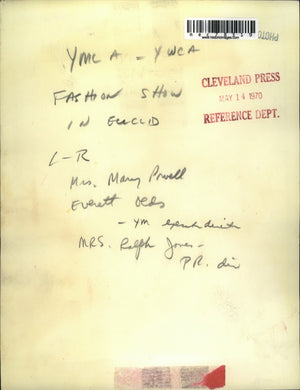 YMCA - YWCA
CLEVELAND PRESS
MAY 14 1970
REFERENCE DEPT.
FASHION SHOW
IN EUCLID
L-R
Mrs. Mary Powell
Everett
- ym
MRS. Ralph Jones -
P.R. dir
PHOTO